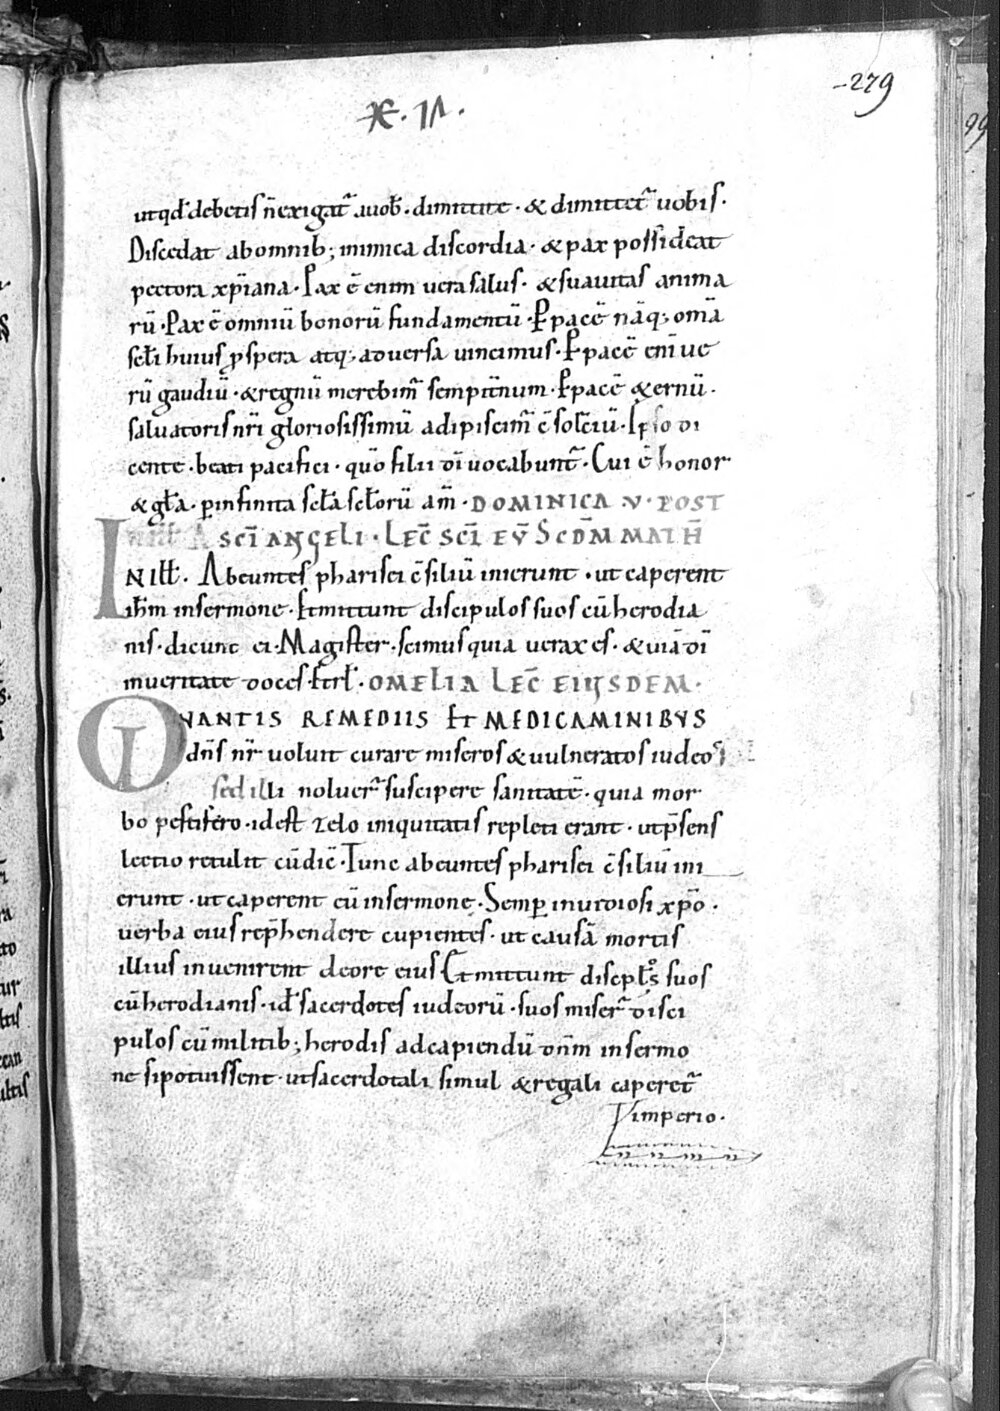 -279
ut qđ debetis n̄ exigat᷑ a uob̄. dimittite. & dimittet᷑ uobis.
Discedat ab omnib; inimica discordia. & pax possideat
pectora xp̄iana. Pax ē enim uera salus. & suauitas anima
rū. Pax ē omniū bonorū fundamentū. P̲ pacē nāq; om̄ia
sc̄li huius ꝓspera atq; aduersa uincimus. P̲ pacē eni᷑ ue
rū gaudiū. & regnū merebim᷑ sempit̄num. P̲ pacē & ernū.
saluatoris nr̄i gloriosissimū adipiscim᷑ c̄solc̄iū. Ipso di
cente. beati pacifici. quō filii dī uocabunt᷑. Cui ē honor
& gl̄a. ꝑ infinita sc̄la sc̄lorū am̄. DOMINICA .V. POST
SCĪ ANGELI. LEC̄ SCĪ EṼ SCD̄M MATH̄
IN ill̄. Abeuntes pharisei c̄siliū inierunt. ut caperent
ih̄m in sermone. Et mittunt discipulos suos cū herodia
nis. dicunt ei. Magister. scimus quia uerax es. & uiā dī
in ueritate doces. & rl̄. OMELIA LEC̄ EIUSDEM.
QUANTIS REMEDIIS ET MEDICAMINIBVS
dn̄s nr̄ uoluit curare miseros & uulneratos iudeos
sed illi noluer᷑ suscipere sanitatē. quia mor
bo pestifero. id est zelo iniquitatis repleti erant. ut p̄sens
lectio retulit cū dic̄. Tunc abeuntes pharisei c̄siliū ini
erunt. ut caperent eū in sermone. Semꝑ inuidiosi xp̄o.
uerba eius rep̄hendere cupientes. ut causā mortis
illius inuenirent de ore eius Et mittunt discpl̄os suos
cū herodianis. id̄ sacerdotes iudeorū. suos miser᷑ disci
pulos cū militib; herodis ad capiendū dn̄m in sermo
ne si potuissent. ut sacerdotali simul & regali caperet᷑
imperio.